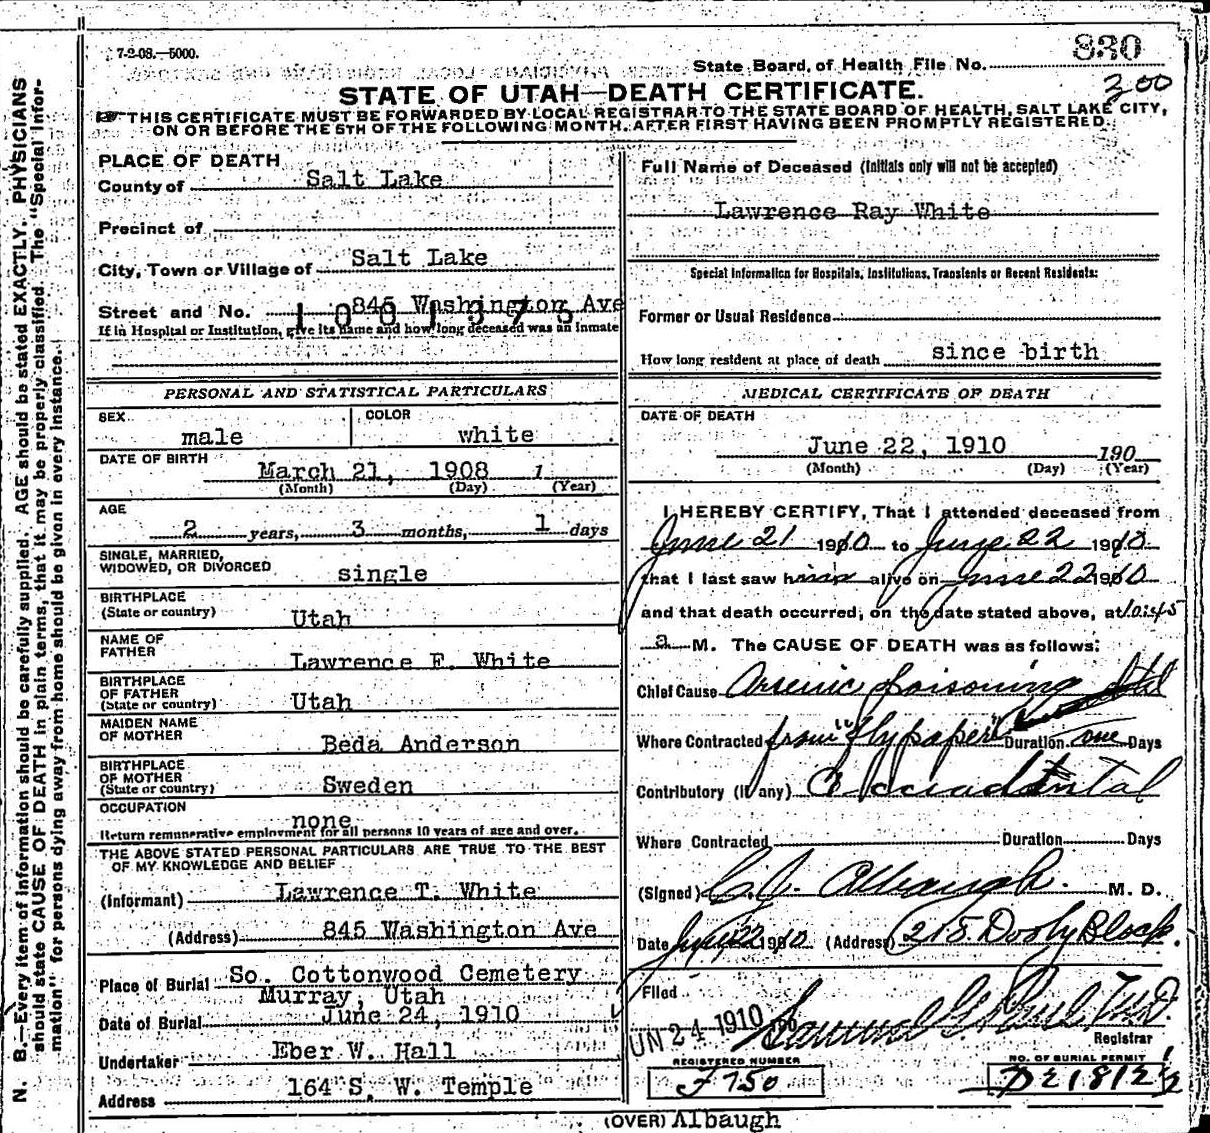 7-2-08.—5000.
830
State Board of Health File No.
300
STATE OF UTAH—DEATH CERTIFICATE.
THIS CERTIFICATE MUST BE FORWARDED BY LOCAL REGISTRAR TO THE STATE BOARD OF HEALTH, SALT LAKE CITY,
ON OR BEFORE THE 5TH OF THE FOLLOWING MONTH. AFTER FIRST HAVING BEEN PROMPTLY REGISTERED.
N. B.—Every item of information should be carefully supplied. AGE should be stated EXACTLY. PHYSICIANS
should state CAUSE OF DEATH in plain terms, that it may be properly classified. The "Special Infor-
mation" for persons dying away from home should be given in every instance.
PLACE OF DEATH
County of Salt Lake
Precinct of
City, Town or Village of Salt Lake
Street and No. 845 Washington Ave
1001375
If in Hospital or Institution, give its name and how long deceased was an inmate
PERSONAL AND STATISTICAL PARTICULARS
SEX male COLOR white
DATE OF BIRTH
March 21, 1908 1
(Month) (Day) (Year)
AGE
2 years, 3 months, 1 days
SINGLE, MARRIED,
WIDOWED, OR DIVORCED single
BIRTHPLACE
(State or country) Utah
NAME OF
FATHER Lawrence F. White
BIRTHPLACE
OF FATHER
(State or country) Utah
MAIDEN NAME
OF MOTHER Beda Anderson
BIRTHPLACE
OF MOTHER
(State or country) Sweden
OCCUPATION
none
Return remunerative employment for all persons 10 years of age and over.
THE ABOVE STATED PERSONAL PARTICULARS ARE TRUE TO THE BEST
OF MY KNOWLEDGE AND BELIEF
(Informant) Lawrence T. White
(Address) 845 Washington Ave
Place of Burial So. Cottonwood Cemetery
Murray, Utah
Date of Burial June 24, 1910
Undertaker Eber W. Hall
Address 164 S. W. Temple
Full Name of Deceased (Initials only will not be accepted)
Lawrence Ray White
Special Information for Hospitals, Institutions, Transients or Recent Residents:
Former or Usual Residence
How long resident at place of death since birth
MEDICAL CERTIFICATE OF DEATH
DATE OF DEATH
June 22, 1910 190
(Month) (Day) (Year)
I HEREBY CERTIFY, That I attended deceased from
June 21 1910 to June 22 1910
that I last saw him alive on June 22 1910
and that death occurred, on the date stated above, at 10:45
a M. The CAUSE OF DEATH was as follows:
Chief Cause Arsenic poisoning
Where Contracted from "flypaper" Duration one Days
Contributory (if any) Accidental
Where Contracted Duration Days
(Signed) C. A. Albaugh. M. D.
Date June 22 1910 (Address) 215 Dooly Block.
Filed
JUN 24 1910 190 M.D.
Registrar
REGISTERED NUMBER
F750
NO. OF BURIAL PERMIT
D21812½
(OVER) Albaugh